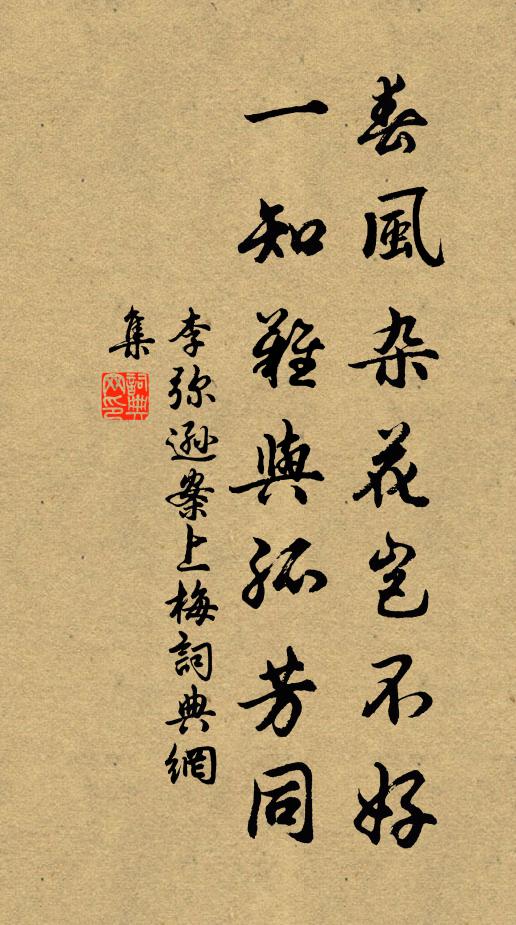 春風杂花岂不好
一知難與孤芳同
李弥遜案上梅詞典網
集
詞典網印